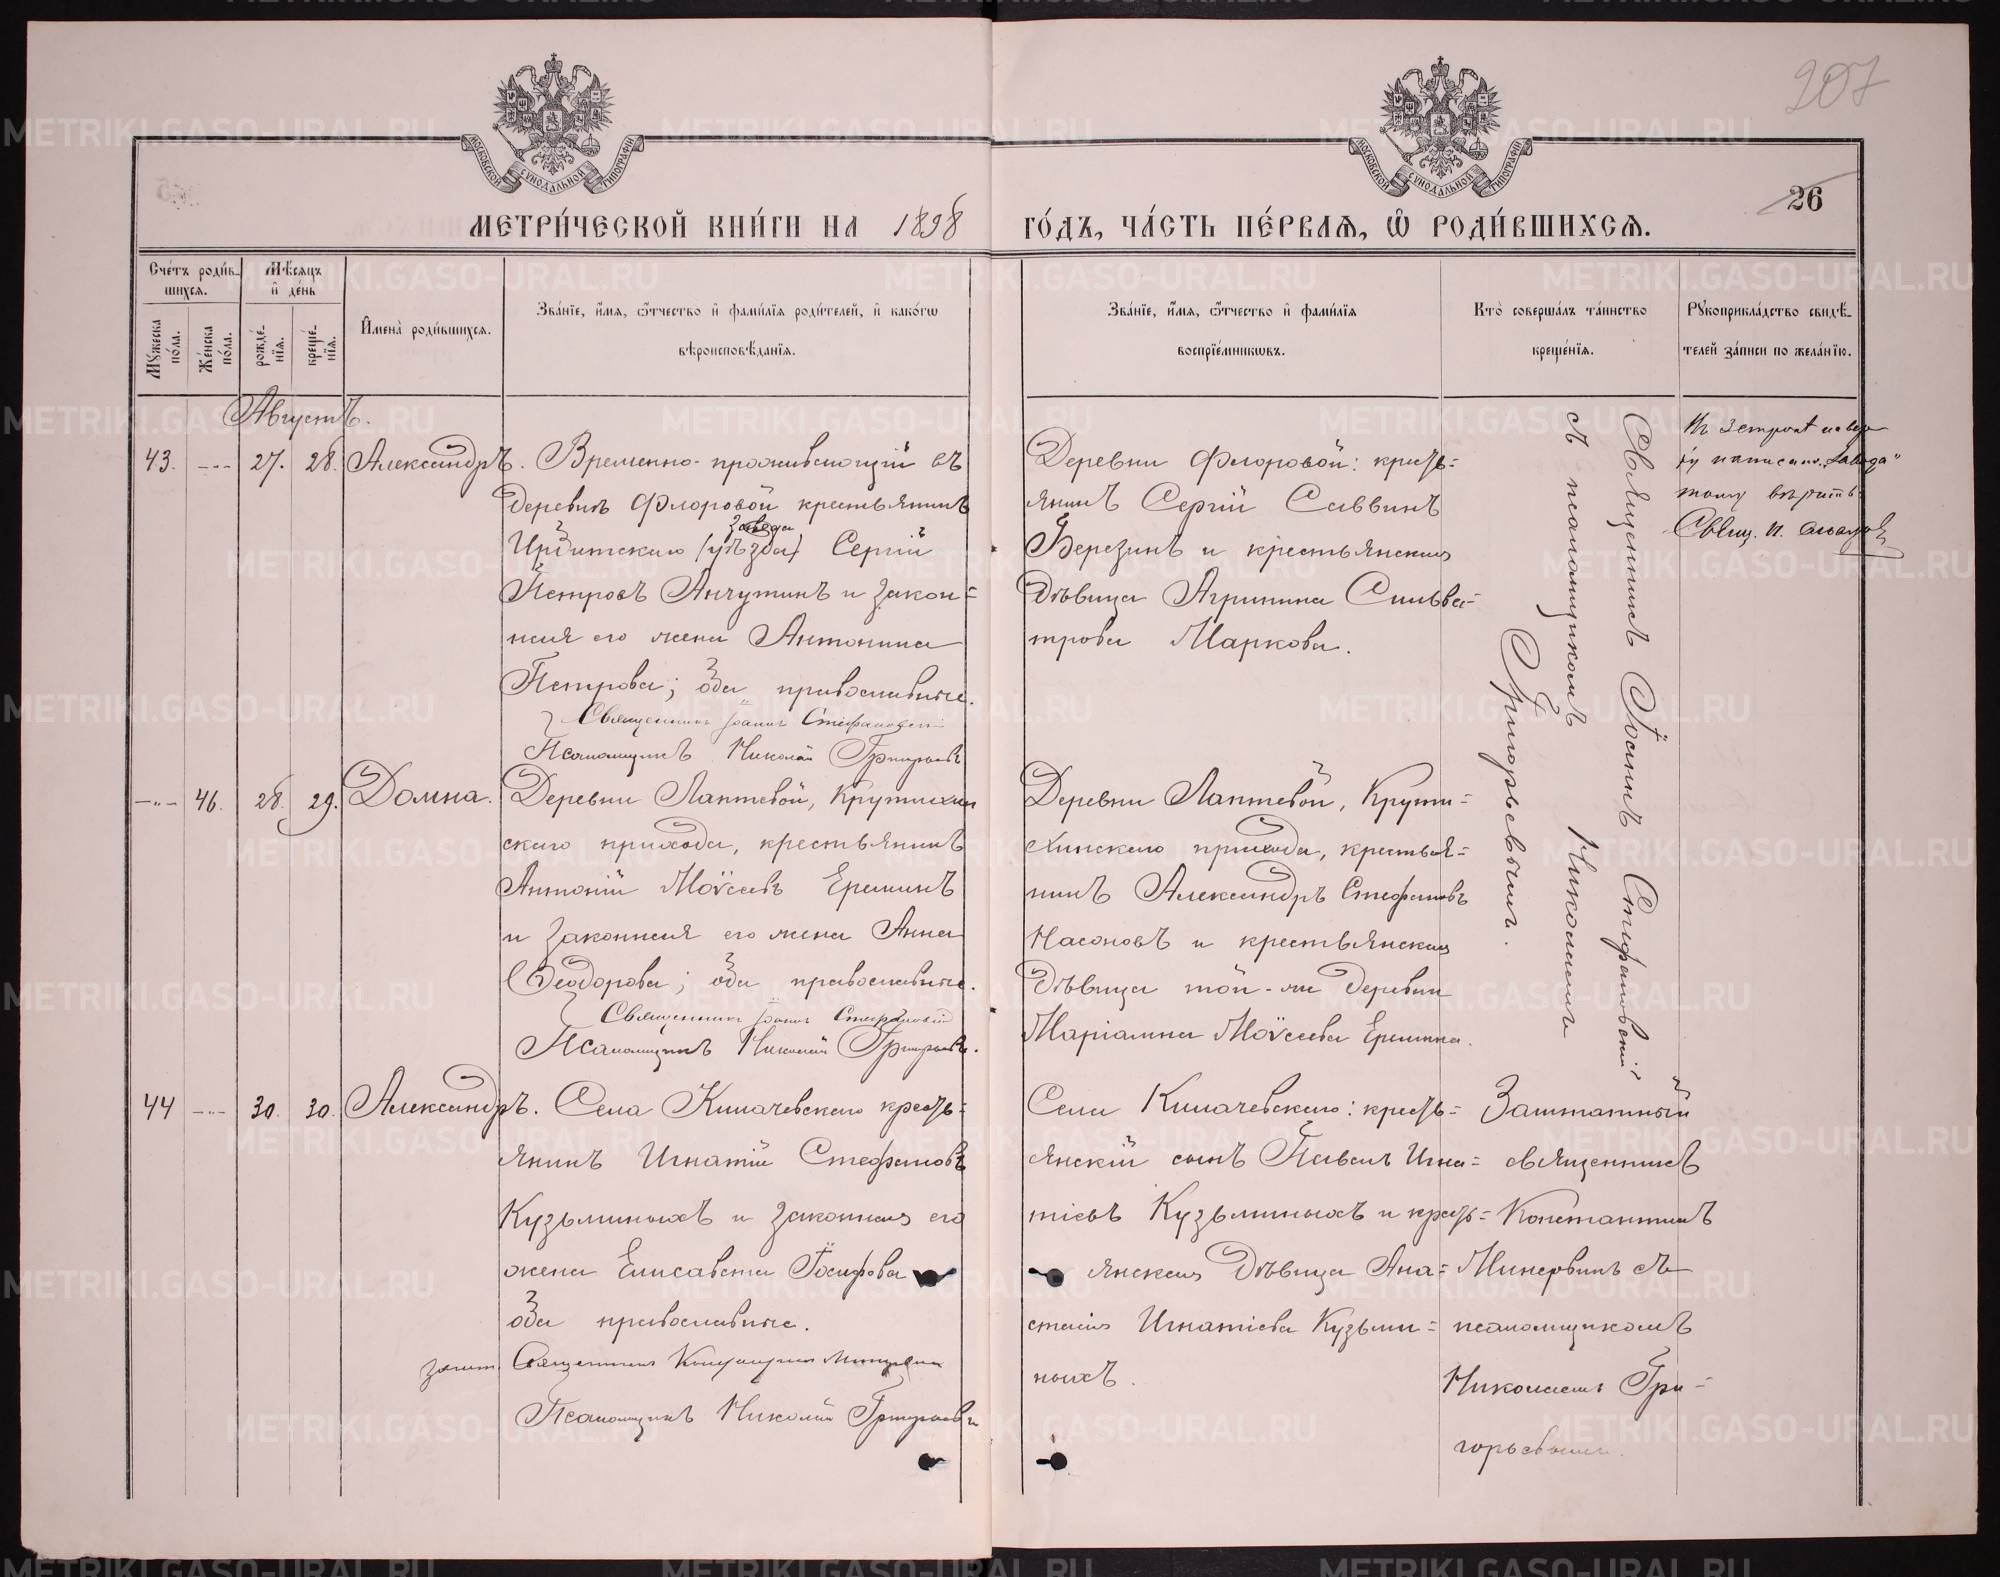 207
26
МОСКОВСКОЙ СѴНОДАЛЬНОЙ ТИПОГРАФІИ
МОСКОВСКОЙ СѴНОДАЛЬНОЙ ТИПОГРАФІИ
МЕТРИ́ЧЕСКОЙ КНИ́ГИ НА 1898 ГО́ДЪ, ЧА́СТЬ ПЕ́РВАѦ, Ѽ РОДИ́ВШИХСѦ.
Сче́тъ роди́в-
шихсѧ.
Мѣ́сѧцъ
и҆ де́нь
Мꙋ́жеска
по́ла.
Же́нска
по́ла.
рожде́-
нїѧ.
креще́-
нїѧ.
И҆мена̀ роди́вшихсѧ.
Зва́нїе, и҆́мѧ, ѻ҆́тчество и҆ фами́лїѧ роди́телей, и҆ како́гѡ
вѣроисповѣ́данїѧ.
Зва́нїе, и҆́мѧ, ѻ҆́тчество и҆ фами́лїѧ
воспрїе́мникѡвъ.
Кто̀ соверша́лъ та́инство
креще́нїѧ.
Рꙋкоприкла́дство свидѣ́-
телей за́писи по жела́нїю.
Августъ.
43. -"- 27. 28. Александръ. Временно-проживающій въ
деревнѣ Флоровой крестьянинъ
завода
Ирбитскаго (уѣзда) Сергій
Петровъ Анчутинъ и закон=
ная его жена Антонина
Петрова; оба православные.
Священникъ Іоаннъ Стефановскій
Псаломщикъ Николай Григорьевъ
Деревни Флоровой: кресть=
янинъ Сергій Саввинъ
Березинъ и крестьянская
дѣвица Агрипина Сильве=
строва Маркова.
Священникъ Іоаннъ Стефановскій
съ псаломщикомъ Николаемъ
Григорьевымъ.
написано „завода"
тому вѣрить
Свящ. И.
-"- 46. 28. 29. Домна. Деревни Лаптевой, Крутихин
скаго прихода, крестьянинъ
Антоній Моѵсеевъ Ереминъ
и законная его жена Анна
Ѳеодорова; оба православные.
Священникъ Іоаннъ Стефановскій
Псаломщикъ Николай Григорьевъ.
Деревни Лаптевой, Крути=
хинскаго прихода, крестья=
нинъ Александръ Стефановъ
Насоновъ и крестьянская
дѣвица той-же деревни
Маріамна Моѵсеева Еремина.
44 -"- 30. 30. Александръ. Села Килачевскаго кресть=
янинъ Игнатій Стефановъ
Кузьминыхъ и законная его
жена Елисавета Іосифова
оба православные.
зашт. Священникъ Константинъ Минервинъ
Псаломщикъ Николай Григорьевъ
Села Килачевскаго: кресть=
янскій сынъ Павелъ Игна=
тіевъ Кузьминыхъ и кресть=
янская дѣвица Ана=
стасія Игнатіева Кузьми=
ныхъ.
Заштатный
священникъ
Константинъ
Минервинъ съ
псаломщикомъ
Николаемъ Гри-
горьевымъ.
METRIKI.GASO-URAL.RU